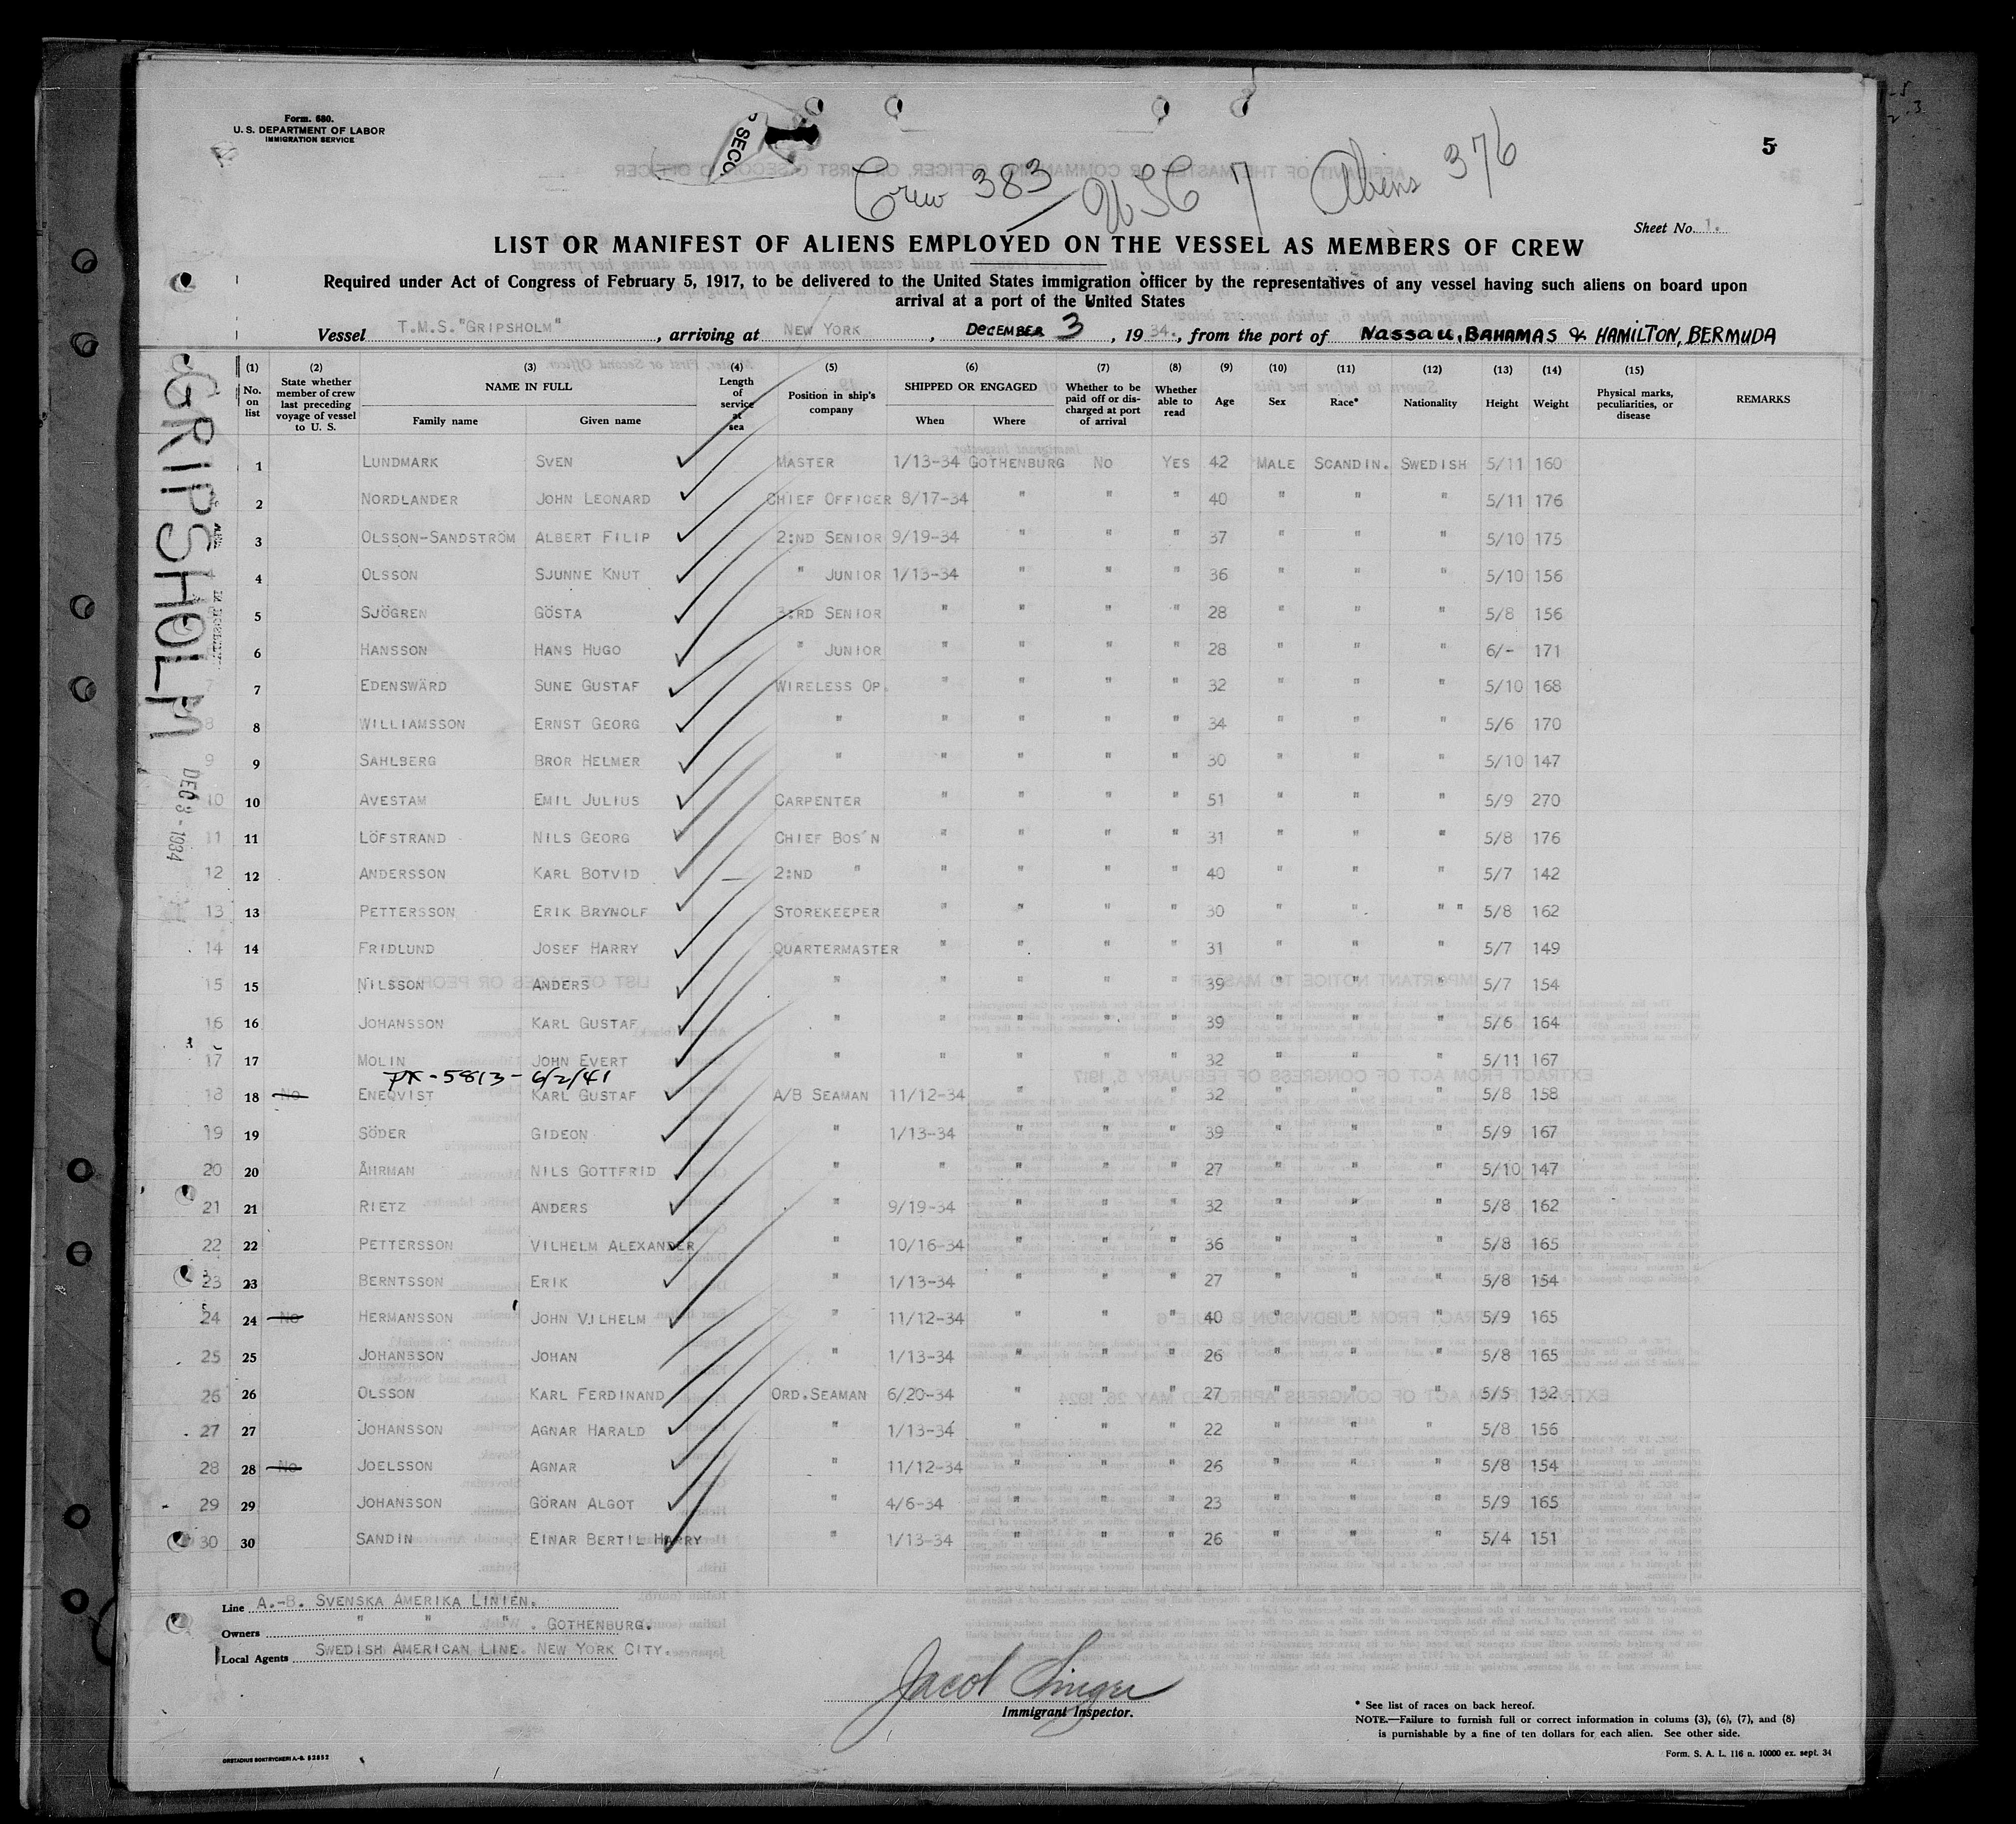 Form. 680.
U. S. DEPARTMENT OF LABOR
IMMIGRATION SERVICE
SECO
5
Crew 383 / USC 7 Aliens 376
Sheet No. 1.
LIST OR MANIFEST OF ALIENS EMPLOYED ON THE VESSEL AS MEMBERS OF CREW
Required under Act of Congress of February 5, 1917, to be delivered to the United States immigration officer by the representatives of any vessel having such aliens on board upon
arrival at a port of the United States
Vessel T.M.S."GRIPSHOLM", arriving at NEW YORK, DECEMBER 3, 1934., from the port of Nassau, BAHAMAS & HAMILTON, BERMUDA
GRIPSHOLM
DEC 3 - 1934
(1) No. on list (2) State whether member of crew last preceding voyage of vessel to U. S. (3) NAME IN FULL Family name Given name (4) Length of service at sea (5) Position in ship's company (6) SHIPPED OR ENGAGED When Where (7) Whether to be paid off or discharged at port of arrival (8) Whether able to read (9) Age (10) Sex (11) Race* (12) Nationality (13) Height (14) Weight (15) Physical marks, peculiarities, or disease REMARKS
1 LUNDMARK SVEN MASTER 1/13-34 GOTHENBURG NO YES 42 MALE SCANDIN. SWEDISH 5/11 160
2 NORDLANDER JOHN LEONARD CHIEF OFFICER 8/17-34 " " " 40 " " " 5/11 176
3 OLSSON-SANDSTRÖM ALBERT FILIP 2:ND SENIOR 9/19-34 " " " 37 " " " 5/10 175
4 OLSSON SJUNNE KNUT " JUNIOR 1/13-34 " " " 36 " " " 5/10 156
5 SJÖGREN GÖSTA 3:RD SENIOR " " " " 28 " " " 5/8 156
6 HANSSON HANS HUGO " JUNIOR " " " " 28 " " " 6/- 171
7 EDENSWÄRD SUNE GUSTAF WIRELESS OP. " " " " 32 " " " 5/10 168
8 WILLIAMSSON ERNST GEORG " " " " " 34 " " " 5/6 170
9 SAHLBERG BROR HELMER " " " " " 30 " " " 5/10 147
10 AVESTAM EMIL JULIUS CARPENTER " " " " 51 " " " 5/9 270
11 LÖFSTRAND NILS GEORG CHIEF BOS'N " " " " 31 " " " 5/8 176
12 ANDERSSON KARL BOTVID 2:ND " " " " " 40 " " " 5/7 142
13 PETTERSSON ERIK BRYNOLF STOREKEEPER " " " " 30 " " " " 5/8 162
14 FRIDLUND JOSEF HARRY QUARTERMASTER " " " " 31 " " " 5/7 149
15 NILSSON ANDERS " " " " " 39 " " " 5/7 154
16 JOHANSSON KARL GUSTAF " " " " " 39 " " " 5/6 164
17 MOLIN JOHN EVERT " " " " " 32 " " " 5/11 167
PX-5813-6/2/41
18 No ENEQVIST KARL GUSTAF A/B SEAMAN 11/12-34 " " " 32 " " " 5/8 158
19 SÖDER GIDEON " 1/13-34 " " " 39 " " " 5/9 167
20 ÅHRMAN NILS GOTTFRID " " " " " 27 " " " 5/10 147
21 RIETZ ANDERS " 9/19-34 " " " 32 " " " 5/8 162
22 PETTERSSON VILHELM ALEXANDER " 10/16-34 " " " 36 " " " 5/8 165
23 BERNTSSON ERIK " 1/13-34 " " " 27 " " " 5/8 154
24 No HERMANSSON JOHN VILHELM " 11/12-34 " " " 40 " " " 5/9 165
25 JOHANSSON JOHAN " 1/13-34 " " " 26 " " " 5/8 165
26 OLSSON KARL FERDINAND ORD.SEAMAN 6/20-34 " " " 27 " " " 5/5 132
27 JOHANSSON AGNAR HARALD " 1/13-34 " " " 22 " " " 5/8 156
28 No JOELSSON AGNAR " 11/12-34 " " " 26 " " " 5/8 154
29 JOHANSSON GÖRAN ALGOT " 4/6-34 " " " 23 " " " 5/9 165
30 SANDIN EINAR BERTIL HARRY " 1/13-34 " " " 26 " " " 5/4 151
Line A.-B. SVENSKA AMERIKA LINIEN.
Owners " " " . GOTHENBURG.
Local Agents SWEDISH AMERICAN LINE. NEW YORK CITY.
Jacob Singer
Immigrant Inspector.
* See list of races on back hereof.
NOTE.—Failure to furnish full or correct information in colums (3), (6), (7), and (8)
is punishable by a fine of ten dollars for each alien. See other side.
Form. S. A. L. 116 n. 10000 ex. sept. 34